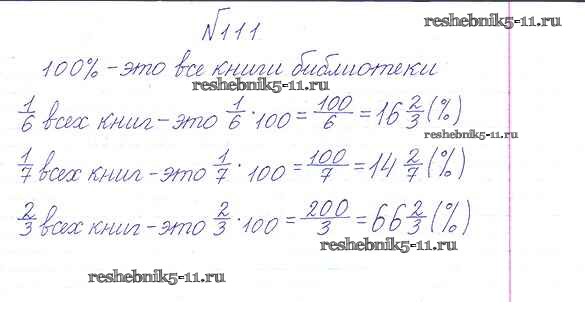 №111
reshebnik5-11.ru
100% - это все книги библиотеки
reshebnik5-11.ru
1/6 всех книг - это 1/6 · 100 = 100/6 = 16 2/3 (%)
reshebnik5-11.ru
1/7 всех книг - это 1/7 · 100 = 100/7 = 14 2/7 (%)
2/3 всех книг - это 2/3 · 100 = 200/3 = 66 2/3 (%)
reshebnik5-11.ru
reshebnik5-11.ru